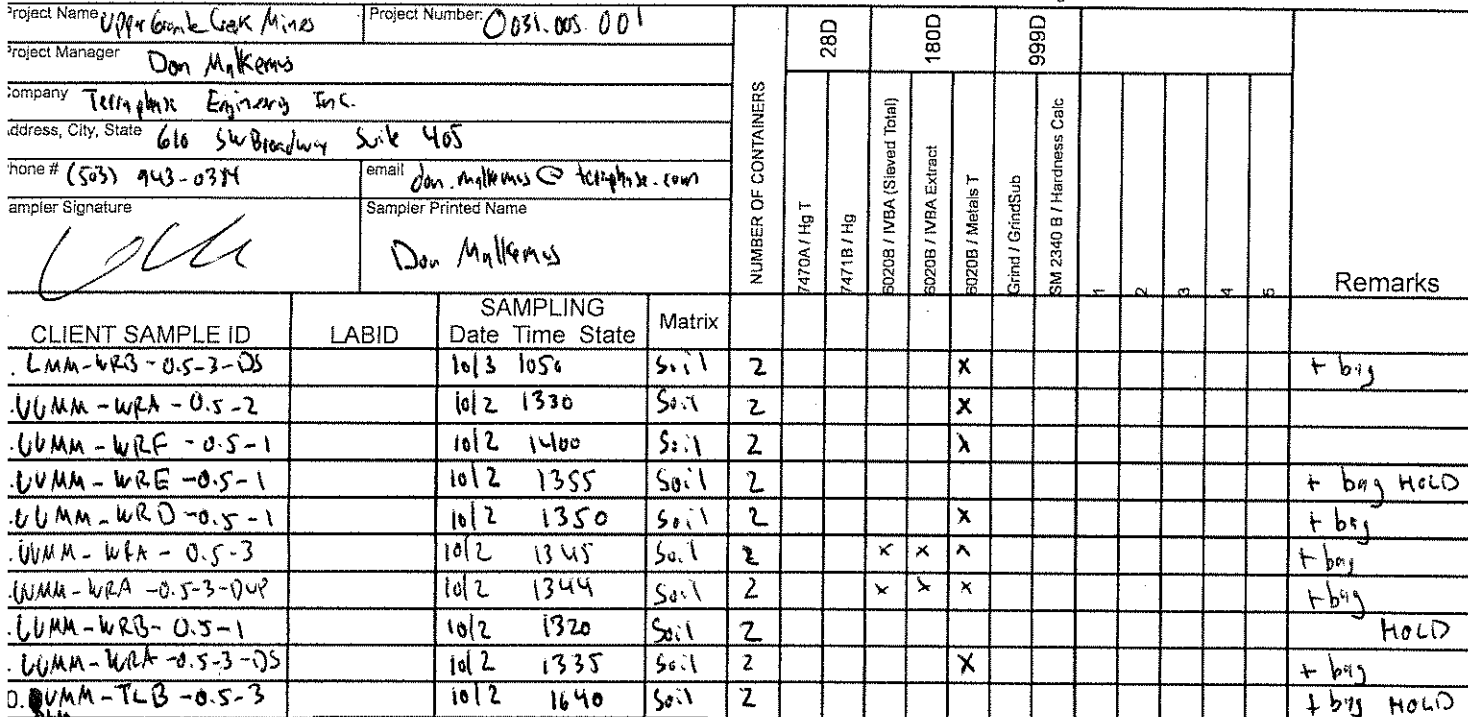 Project Name Upper Granite Creek Mines Project Number: 0031.005.001
Project Manager Don Malkemus
Company Terraphase Engineering Inc.
Address, City, State 610 SW Broadway Suite 405
Phone # (503) 943-0384 email don.malkemus@terraphase.com
Sampler Signature Sampler Printed Name
Don Malkemus
28D 180D 999D
NUMBER OF CONTAINERS
7470A / Hg T
7471B / Hg
6020B / IVBA (Sieved Total)
6020B / IVBA Extract
6020B / Metals T
Grind / GrindSub
SM 2340 B / Hardness Calc
1 2 3 4 5
Remarks
CLIENT SAMPLE ID LABID SAMPLING Date Time State Matrix
. LMM-WRB-0.5-3-DS 10/3 1050 Soil 2 X + bag
. UUMM-WRA-0.5-2 10/2 1330 Soil 2 X
. UUMM-WRF-0.5-1 10/2 1400 Soil 2 X
. UUMM-WRE-0.5-1 10/2 1355 Soil 2 + bag HOLD
. UUMM-WRD-0.5-1 10/2 1350 Soil 2 X + bag
. UUMM-WRA-0.5-3 10/2 1345 Soil 2 X X X + bag
. UUMM-WRA-0.5-3-DUP 10/2 1344 Soil 2 X X X + bag
. UUMM-WRB-0.5-1 10/2 1320 Soil 2 HOLD
. UUMM-WRA-0.5-3-DS 10/2 1335 Soil 2 X + bag
0. UMM-TLB-0.5-3 10/2 1640 Soil 2 + bag HOLD